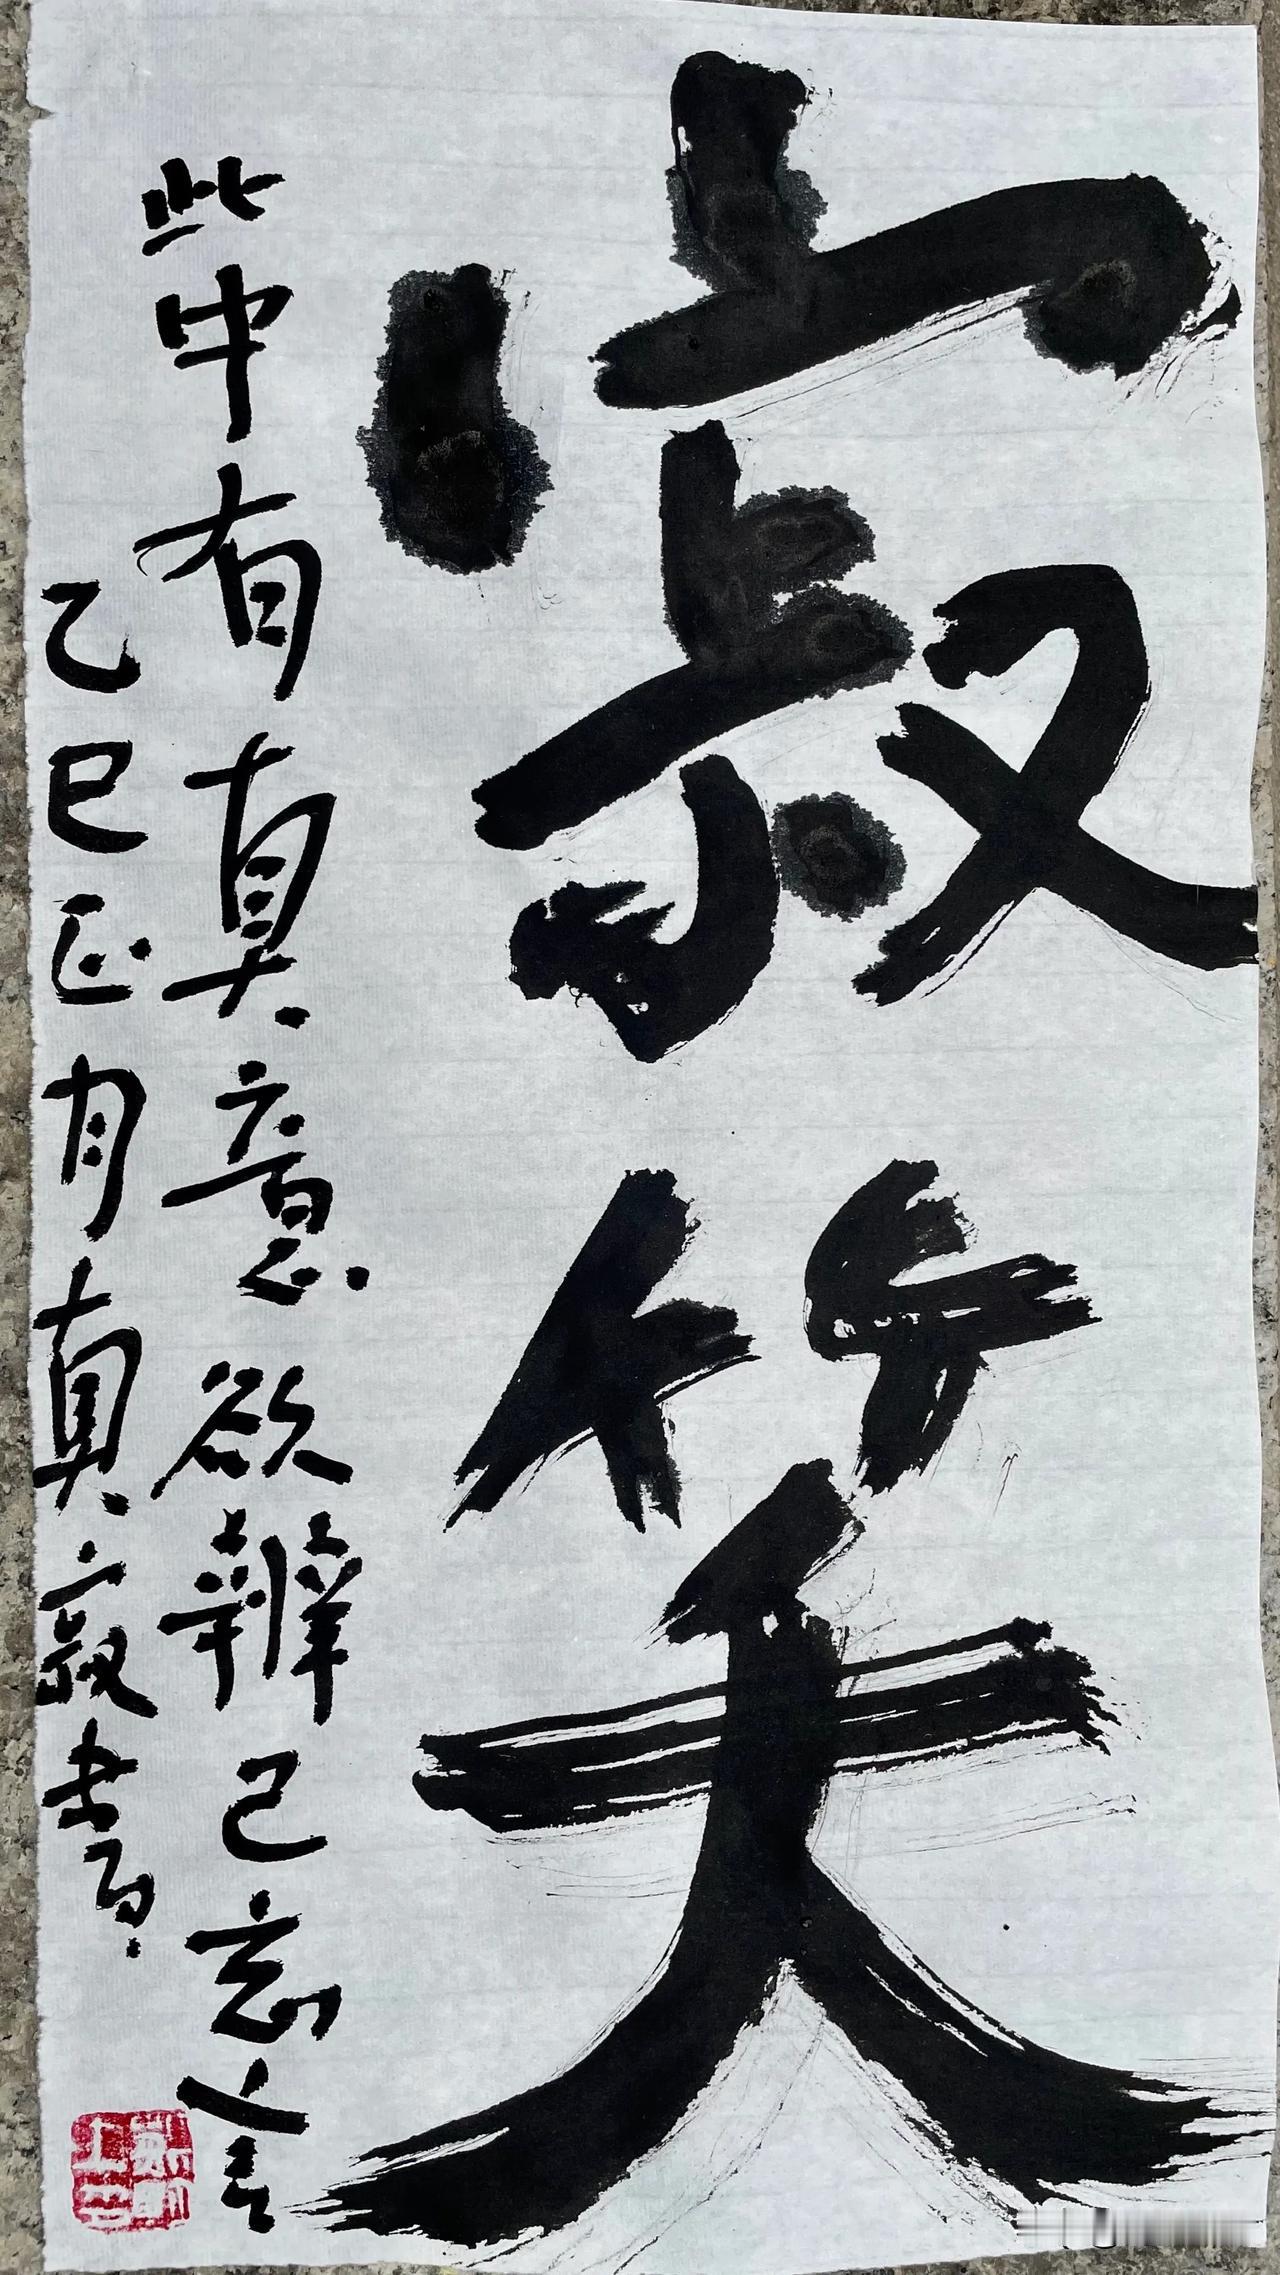 寂笑
此中有真意欲辨已忘言
乙巳正月真寂書